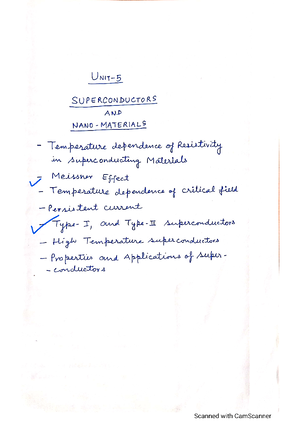 UNIT-5
SUPERCONDUCTORS
AND
NANO-MATERIALS
- Temperature dependence of Resistivity
in superconducting Materials
- Meissner Effect
- Temperature dependence of critical field
- Persistent current
- Type-I, and Type-II superconductors
- High Temperature superconductors
- Properties and Applications of super-
-conductors
Scanned with CamScanner